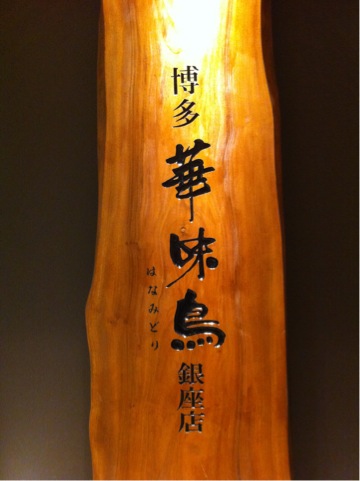 博多華味鳥銀座店
はなみどり